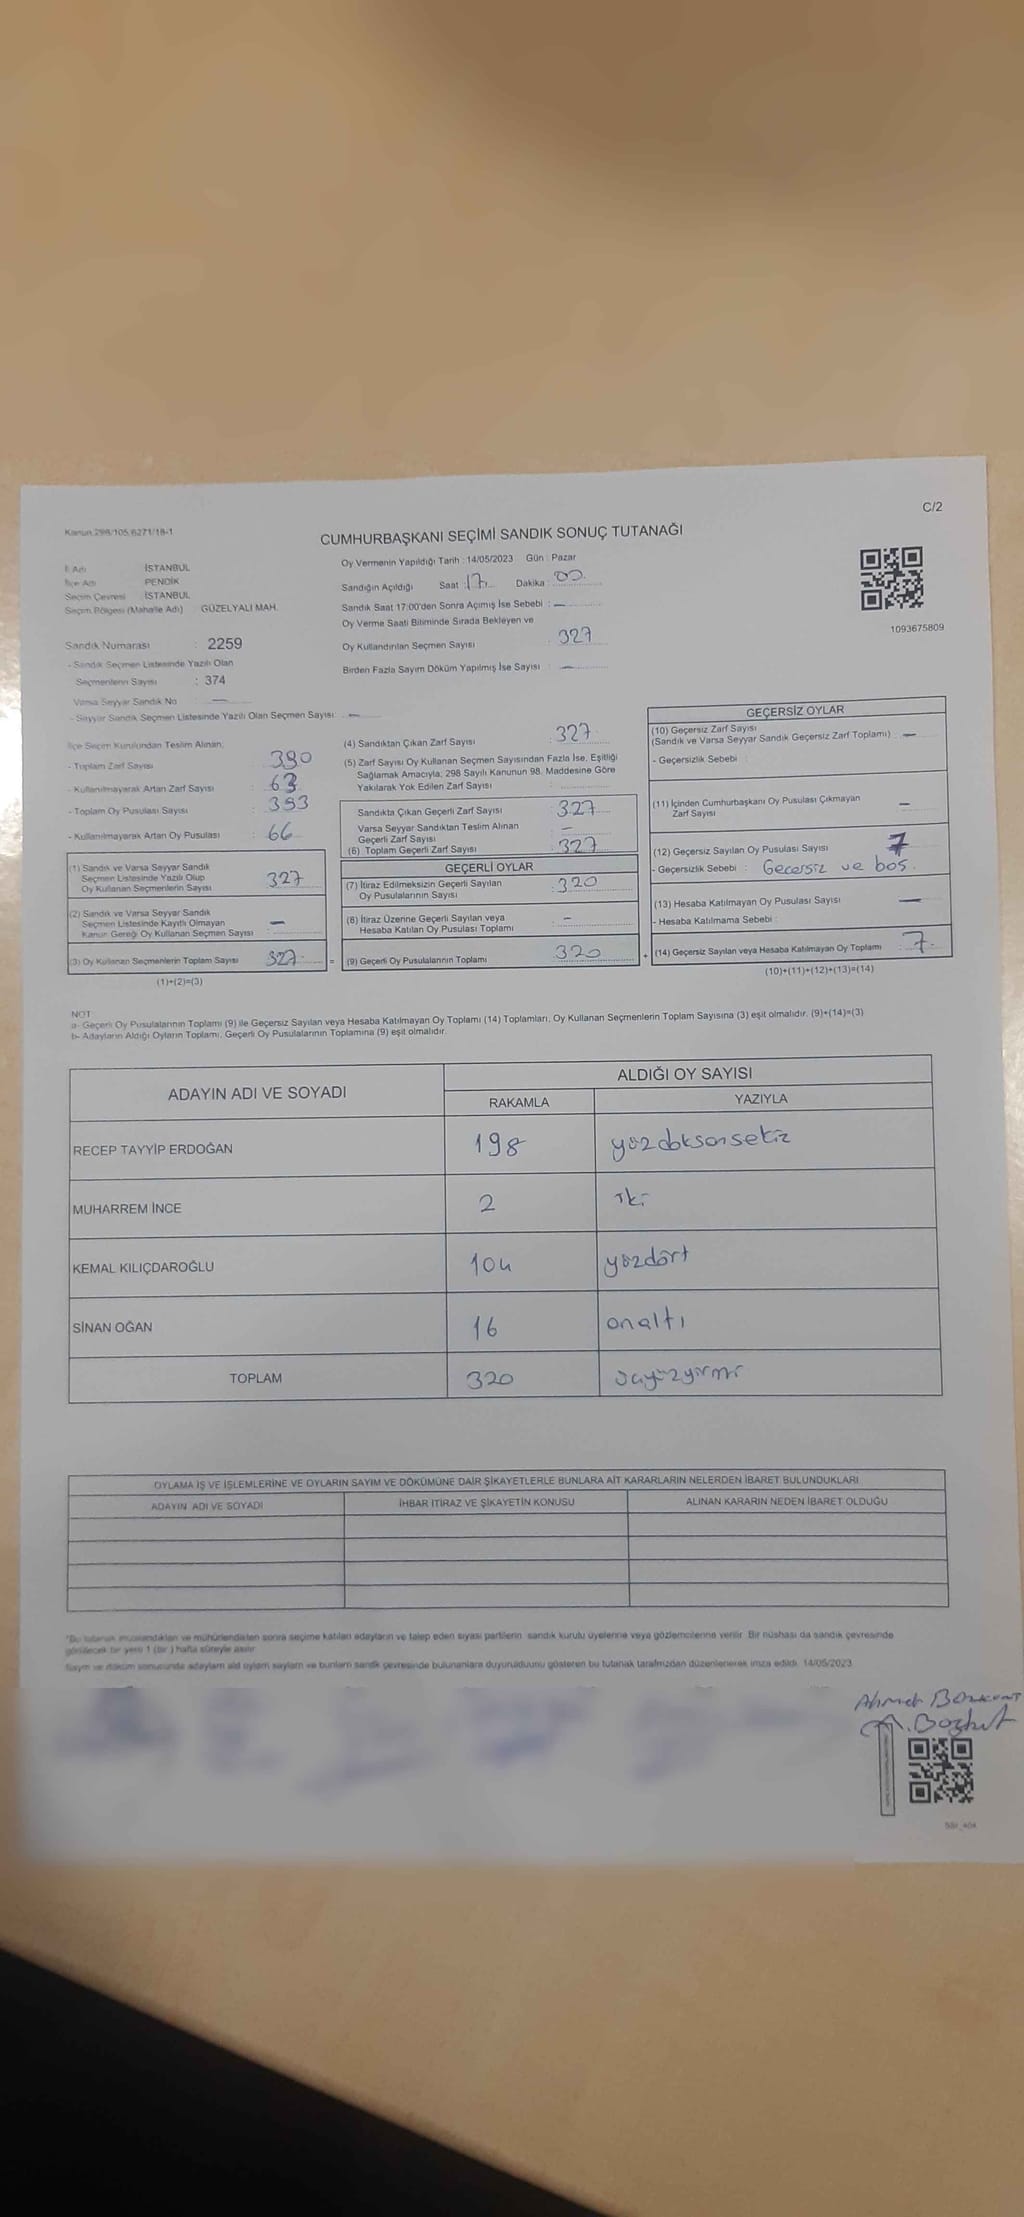 C/2
Kanun 298/105,6271/18-1
CUMHURBAŞKANI SEÇİMİ SANDIK SONUÇ TUTANAĞI
İl Adı İSTANBUL
İlçe Adı PENDİK
Seçim Çevresi İSTANBUL
Seçim Bölgesi (Mahalle Adı) GÜZELYALI MAH.
Sandık Numarası : 2259
- Sandık Seçmen Listesinde Yazılı Olan
Seçmenlerin Sayısı : 374
Varsa Seyyar Sandık No : —
- Seyyar Sandık Seçmen Listesinde Yazılı Olan Seçmen Sayısı: —
Oy Vermenin Yapıldığı Tarih : 14/05/2023 Gün : Pazar
Sandığın Açıldığı Saat : 17 Dakika : 00
Sandık Saat 17:00'den Sonra Açımış İse Sebebi : —
Oy Verme Saati Bitiminde Sırada Bekleyen ve
Oy Kullandırılan Seçmen Sayısı : 327
Birden Fazla Sayım Döküm Yapılmış İse Sayısı : —
1093675809
İlçe Seçim Kurulundan Teslim Alınan;
- Toplam Zarf Sayısı : 390
- Kullanılmayarak Artan Zarf Sayısı : 63
- Toplam Oy Pusulası Sayısı : 393
- Kullanılmayarak Artan Oy Pusulası : 66
(1) Sandık ve Varsa Seyyar Sandık
Seçmen Listesinde Yazılı Olup
Oy Kullanan Seçmenlerin Sayısı : 327
(2) Sandık ve Varsa Seyyar Sandık
Seçmen Listesinde Kayıtlı Olmayan
Kanun Gereği Oy Kullanan Seçmen Sayısı : —
(3) Oy Kullanan Seçmenlerin Toplam Sayısı : 327
(1)+(2)=(3)
(4) Sandıktan Çıkan Zarf Sayısı : 327
(5) Zarf Sayısı Oy Kullanan Seçmen Sayısından Fazla İse, Eşitliği
Sağlamak Amacıyla, 298 Sayılı Kanunun 98. Maddesine Göre
Yakılarak Yok Edilen Zarf Sayısı :
Sandıkta Çıkan Geçerli Zarf Sayısı : 327
Varsa Seyyar Sandıktan Teslim Alınan
Geçerli Zarf Sayısı : —
(6) Toplam Geçerli Zarf Sayısı : 327
GEÇERLİ OYLAR
(7) İtiraz Edilmeksizin Geçerli Sayılan
Oy Pusulalarının Sayısı : 320
(8) İtiraz Üzerine Geçerli Sayılan veya
Hesaba Katılan Oy Pusulası Toplamı : —
= (9) Geçerli Oy Pusulalarının Toplamı : 320
GEÇERSİZ OYLAR
(10) Geçersiz Zarf Sayısı
(Sandık ve Varsa Seyyar Sandık Geçersiz Zarf Toplamı) : —
- Geçersizlik Sebebi :
(11) İçinden Cumhurbaşkanı Oy Pusulası Çıkmayan
Zarf Sayısı : —
(12) Geçersiz Sayılan Oy Pusulası Sayısı : 7
- Geçersizlik Sebebi : Gecersiz ve boş.
(13) Hesaba Katılmayan Oy Pusulası Sayısı : —
- Hesaba Katılmama Sebebi :
+ (14) Geçersiz Sayılan veya Hesaba Katılmayan Oy Toplamı : 7.
(10)+(11)+(12)+(13)=(14)
NOT
a- Geçerli Oy Pusulalarının Toplamı (9) ile Geçersiz Sayılan veya Hesaba Katılmayan Oy Toplamı (14) Toplamları, Oy Kullanan Seçmenlerin Toplam Sayısına (3) eşit olmalıdır. (9)+(14)=(3)
b- Adayların Aldığı Oyların Toplamı, Geçerli Oy Pusulalarının Toplamına (9) eşit olmalıdır.
ADAYIN ADI VE SOYADI
ALDIĞI OY SAYISI
RAKAMLA YAZIYLA
RECEP TAYYİP ERDOĞAN 198 yüzdoksonsekiz
MUHARREM İNCE 2 iki
KEMAL KILIÇDAROĞLU 104 yüzdört
SİNAN OĞAN 16 onaltı
TOPLAM 320 üçyüzyirmi
OYLAMA İŞ VE İŞLEMLERİNE VE OYLARIN SAYIM VE DÖKÜMÜNE DAİR ŞİKAYETLERLE BUNLARA AİT KARARLARIN NELERDEN İBARET BULUNDUKLARI
ADAYIN ADI VE SOYADI İHBAR İTİRAZ VE ŞİKAYETİN KONUSU ALINAN KARARIN NEDEN İBARET OLDUĞU
*Bu tutanak imzalandıktan ve mühürlendikten sonra seçime katılan adayların ve talep eden siyasi partilerin sandık kurulu üyelerine veya gözlemcilerine verilir. Bir nüshası da sandık çevresinde
görülecek bir yere 1 (bir ) hafta süreyle asılır.
Sayım ve döküm sonucunda adayların aldığı oyların sayıların ve bunların sandık çevresinde bulunanlara duyurulduğunu gösteren bu tutanak tarafımızdan düzenlenerek imza edildi. 14/05/2023
Ahmet Bozkurt
A. Bozkurt